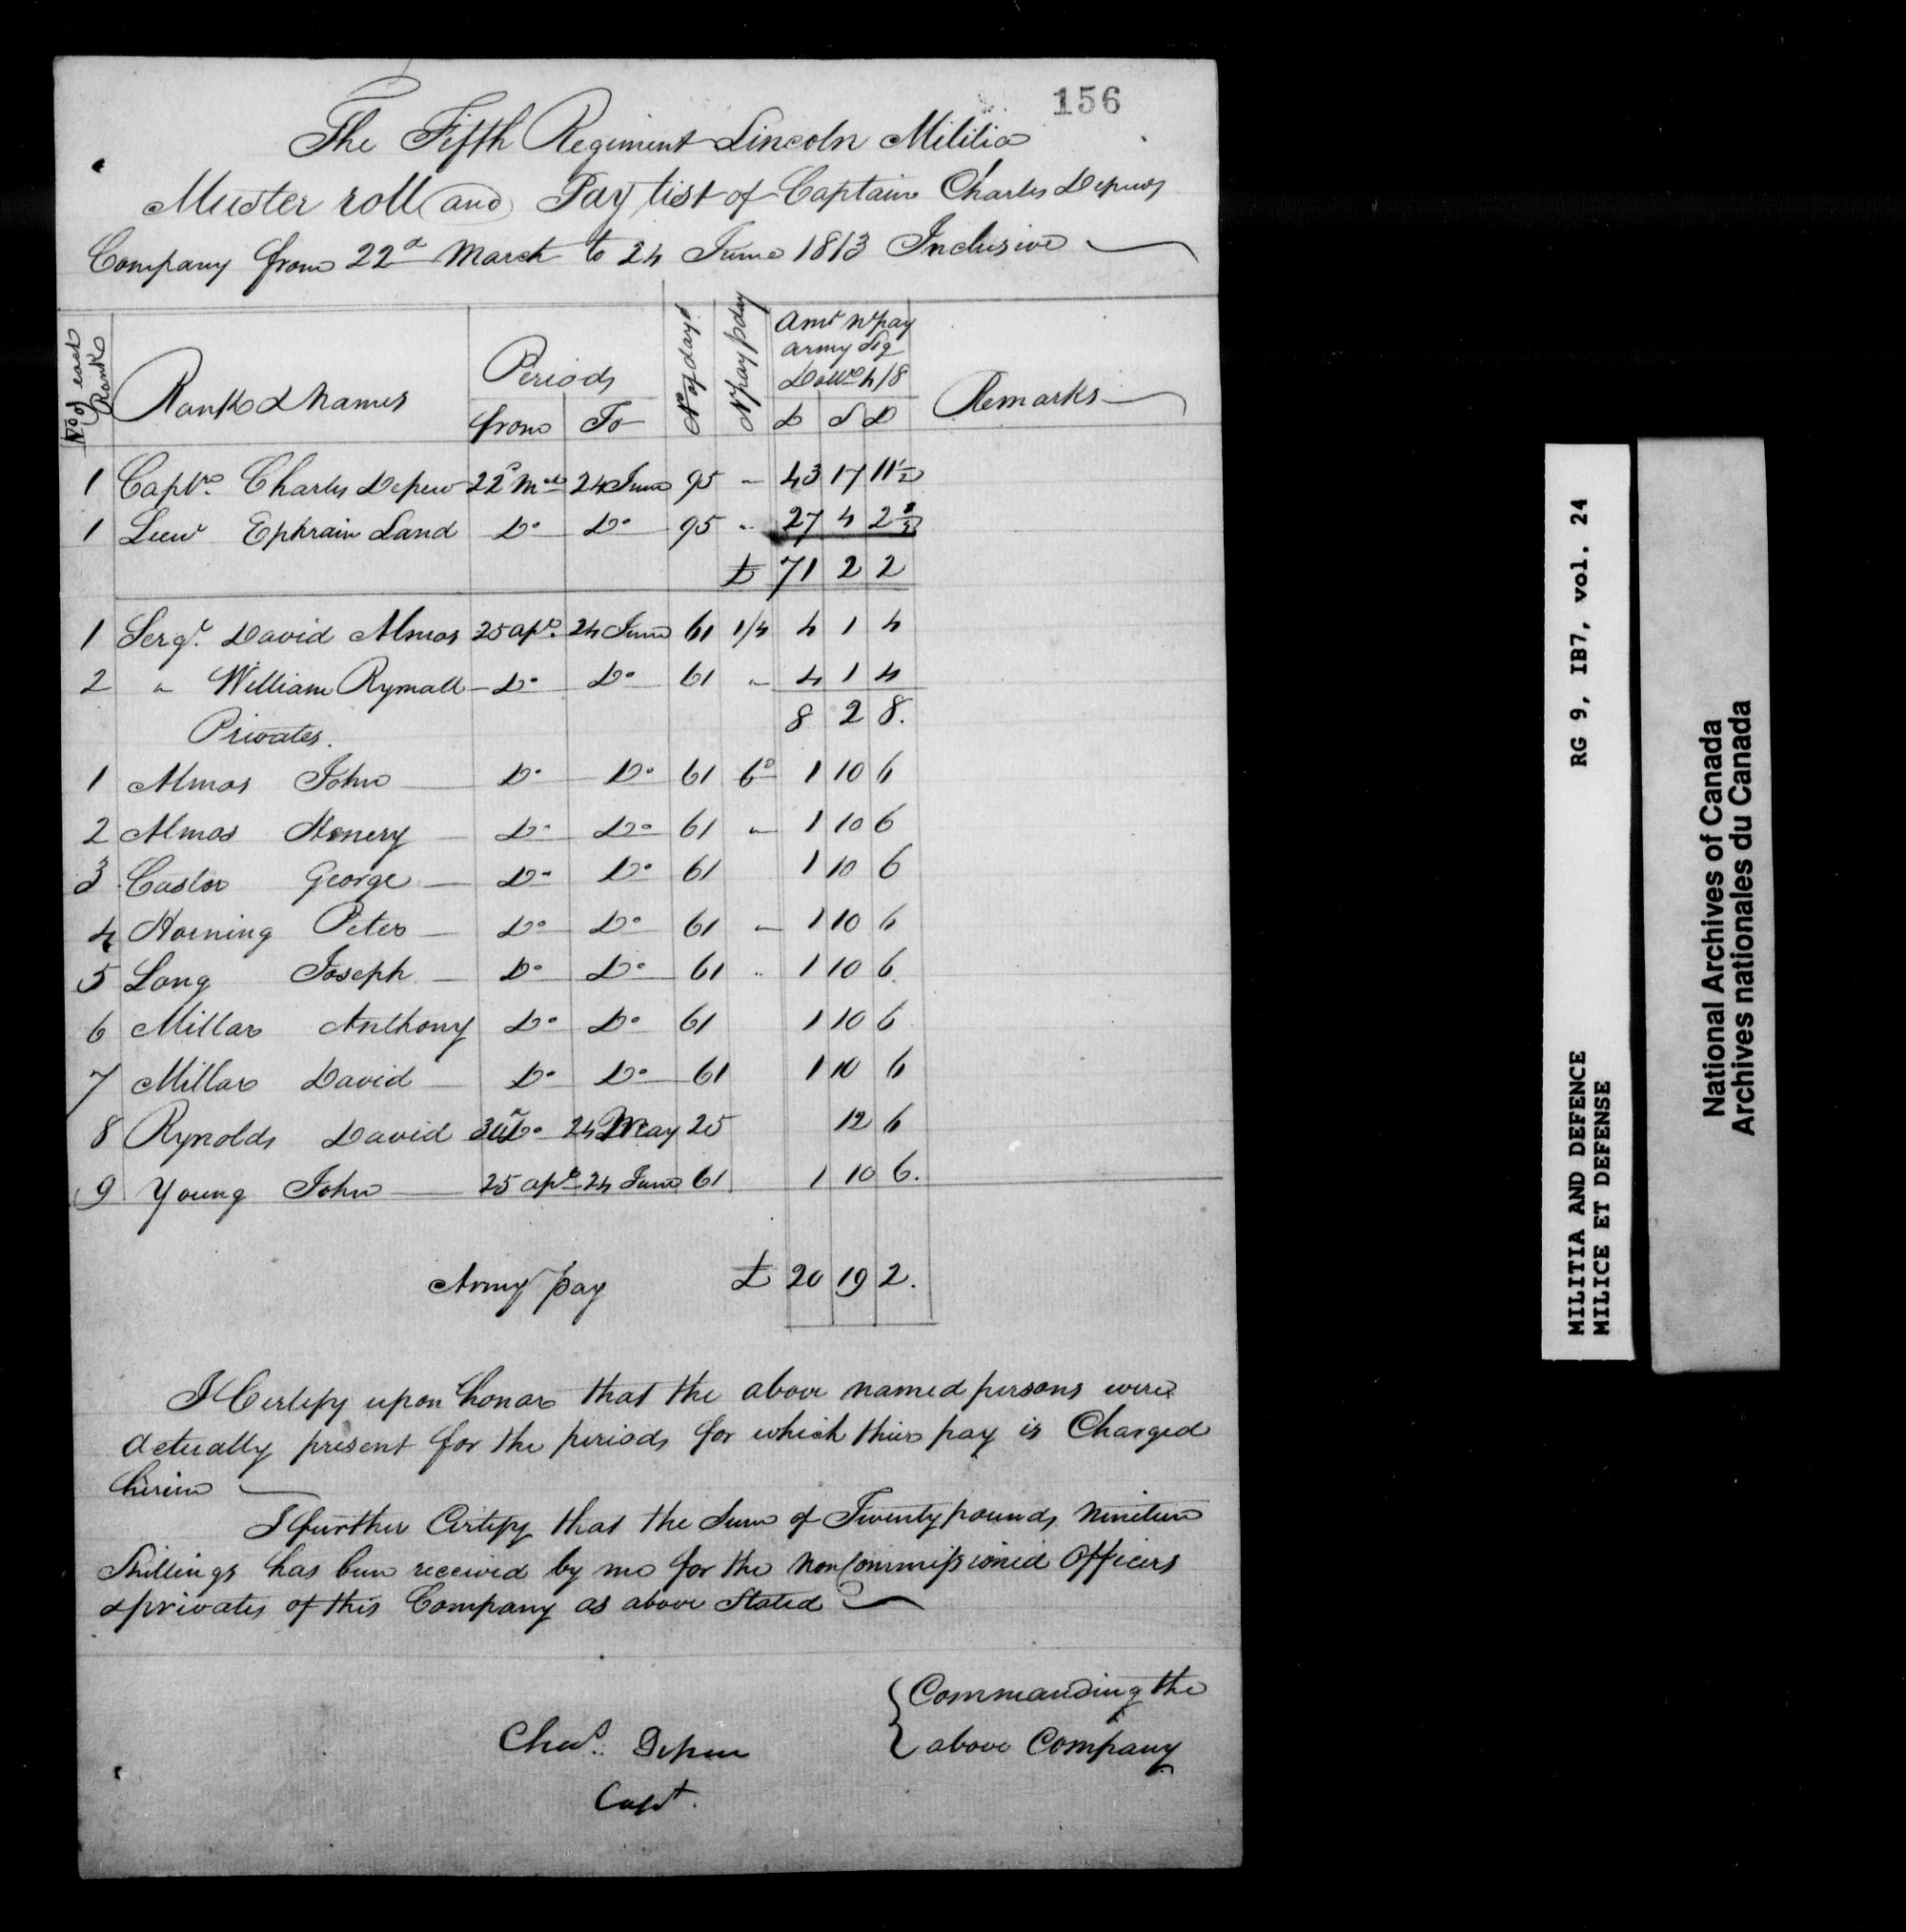 156
The Fifth Regiment Lincoln Militia
Muster roll and Pay list of Captain Charles Depews
Company from 22d March to 24 June 1813 Inclusive
No of each Rank
Rank & Names
Periods
from To
No of days
Pr pay p day
Amt Nt pay
army Stg
Dolls 4/8
£ S D
Remarks
1 Captn. Charles Depew 22d Mch 24 June 95 " 43 17 11½
1 Lieut Ephraim Land Do Do 95 " 27 4 2½
£ 71 2 2
1 Sergt. David Almos 25 apl. 24 June 61 1/4 4 1 4
2 " William Rymall Do Do 61 " 4 1 4
8 2 8.
Privates.
1 Almos John Do Do 61 6d 1 10 6
2 Almos Henery Do Do 61 " 1 10 6
3 Castor George Do Do 61 1 10 6
4 Horning Peter Do Do 61 " 1 10 6
5 Long Joseph Do Do 61 " 1 10 6
6 Millar Anthony Do Do 61 1 10 6
7 Millar David Do Do 61 1 10 6
8 Rynolds David Do 24 May 25 12 6
9 Young John 25 apl 24 June 61 1 10 6.
Army pay £ 20 19 2.
I Certify upon honor that the above named persons were
actually present for the periods for which thier pay is Charged
herein
I further Certify that the Sum of Twenty pounds Nineteen
Shillings has been received by me for the non Commissioned Officers
& privates of this Company as above Stated
Chas. Depew
Capt.
Commanding the
above Company
RG 9, IB7, vol. 24
MILITIA AND DEFENCE
MILICE ET DEFENSE
National Archives of Canada
Archives nationales du Canada